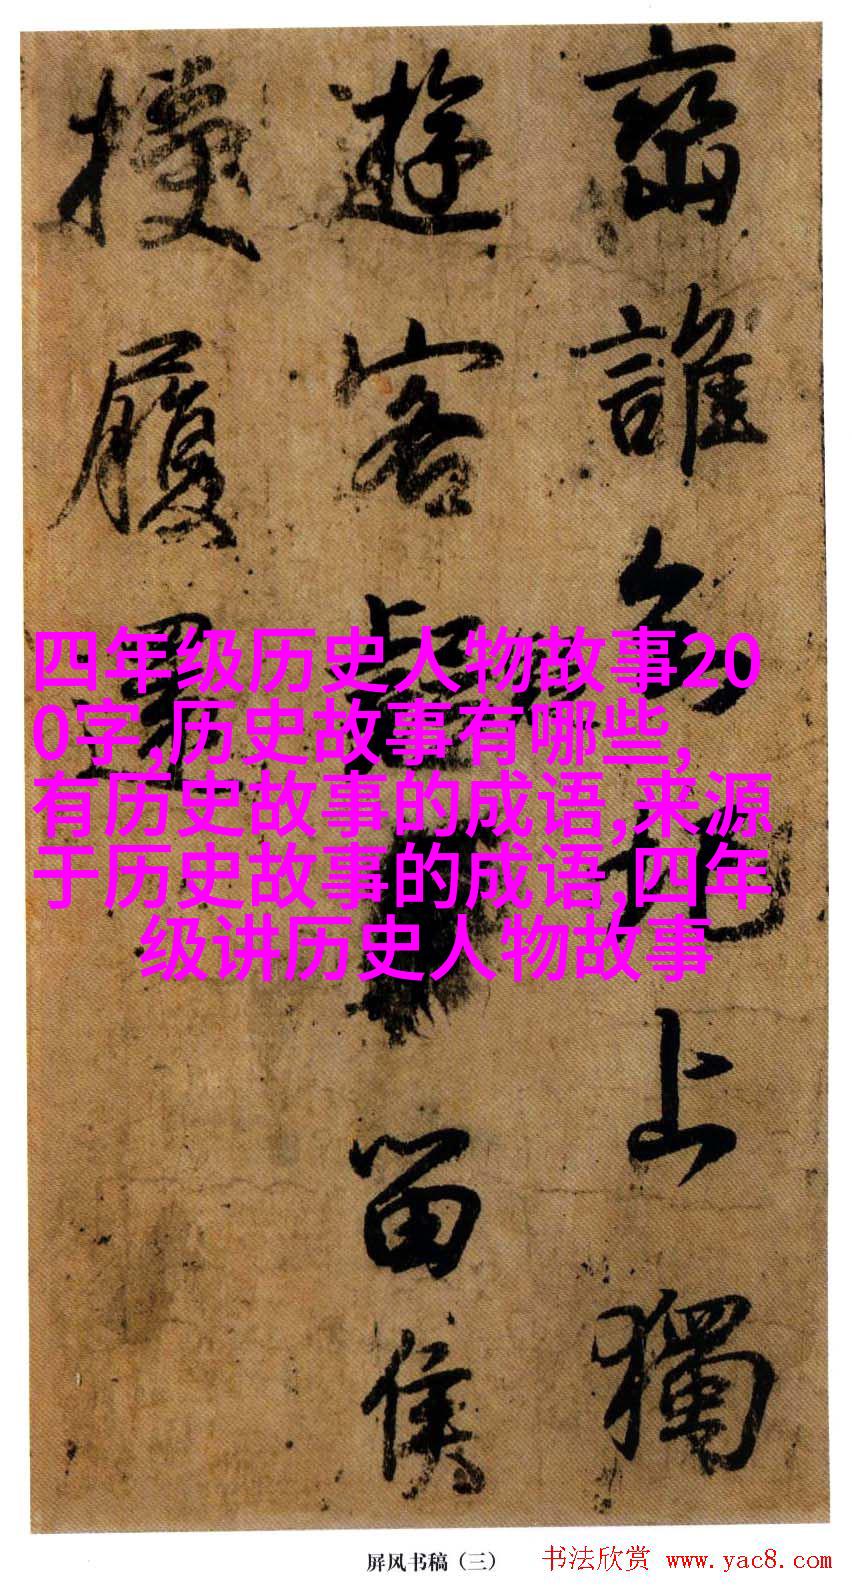 誰 上獨
遊客 留侯
履
四年级历史人物故事20
0字,历史故事有哪些,
有历史故事的成语,来源
于历史故事的成语,四年
级讲历史人物故事
屏风书稿（三）
书法欣赏 www.yac8.com